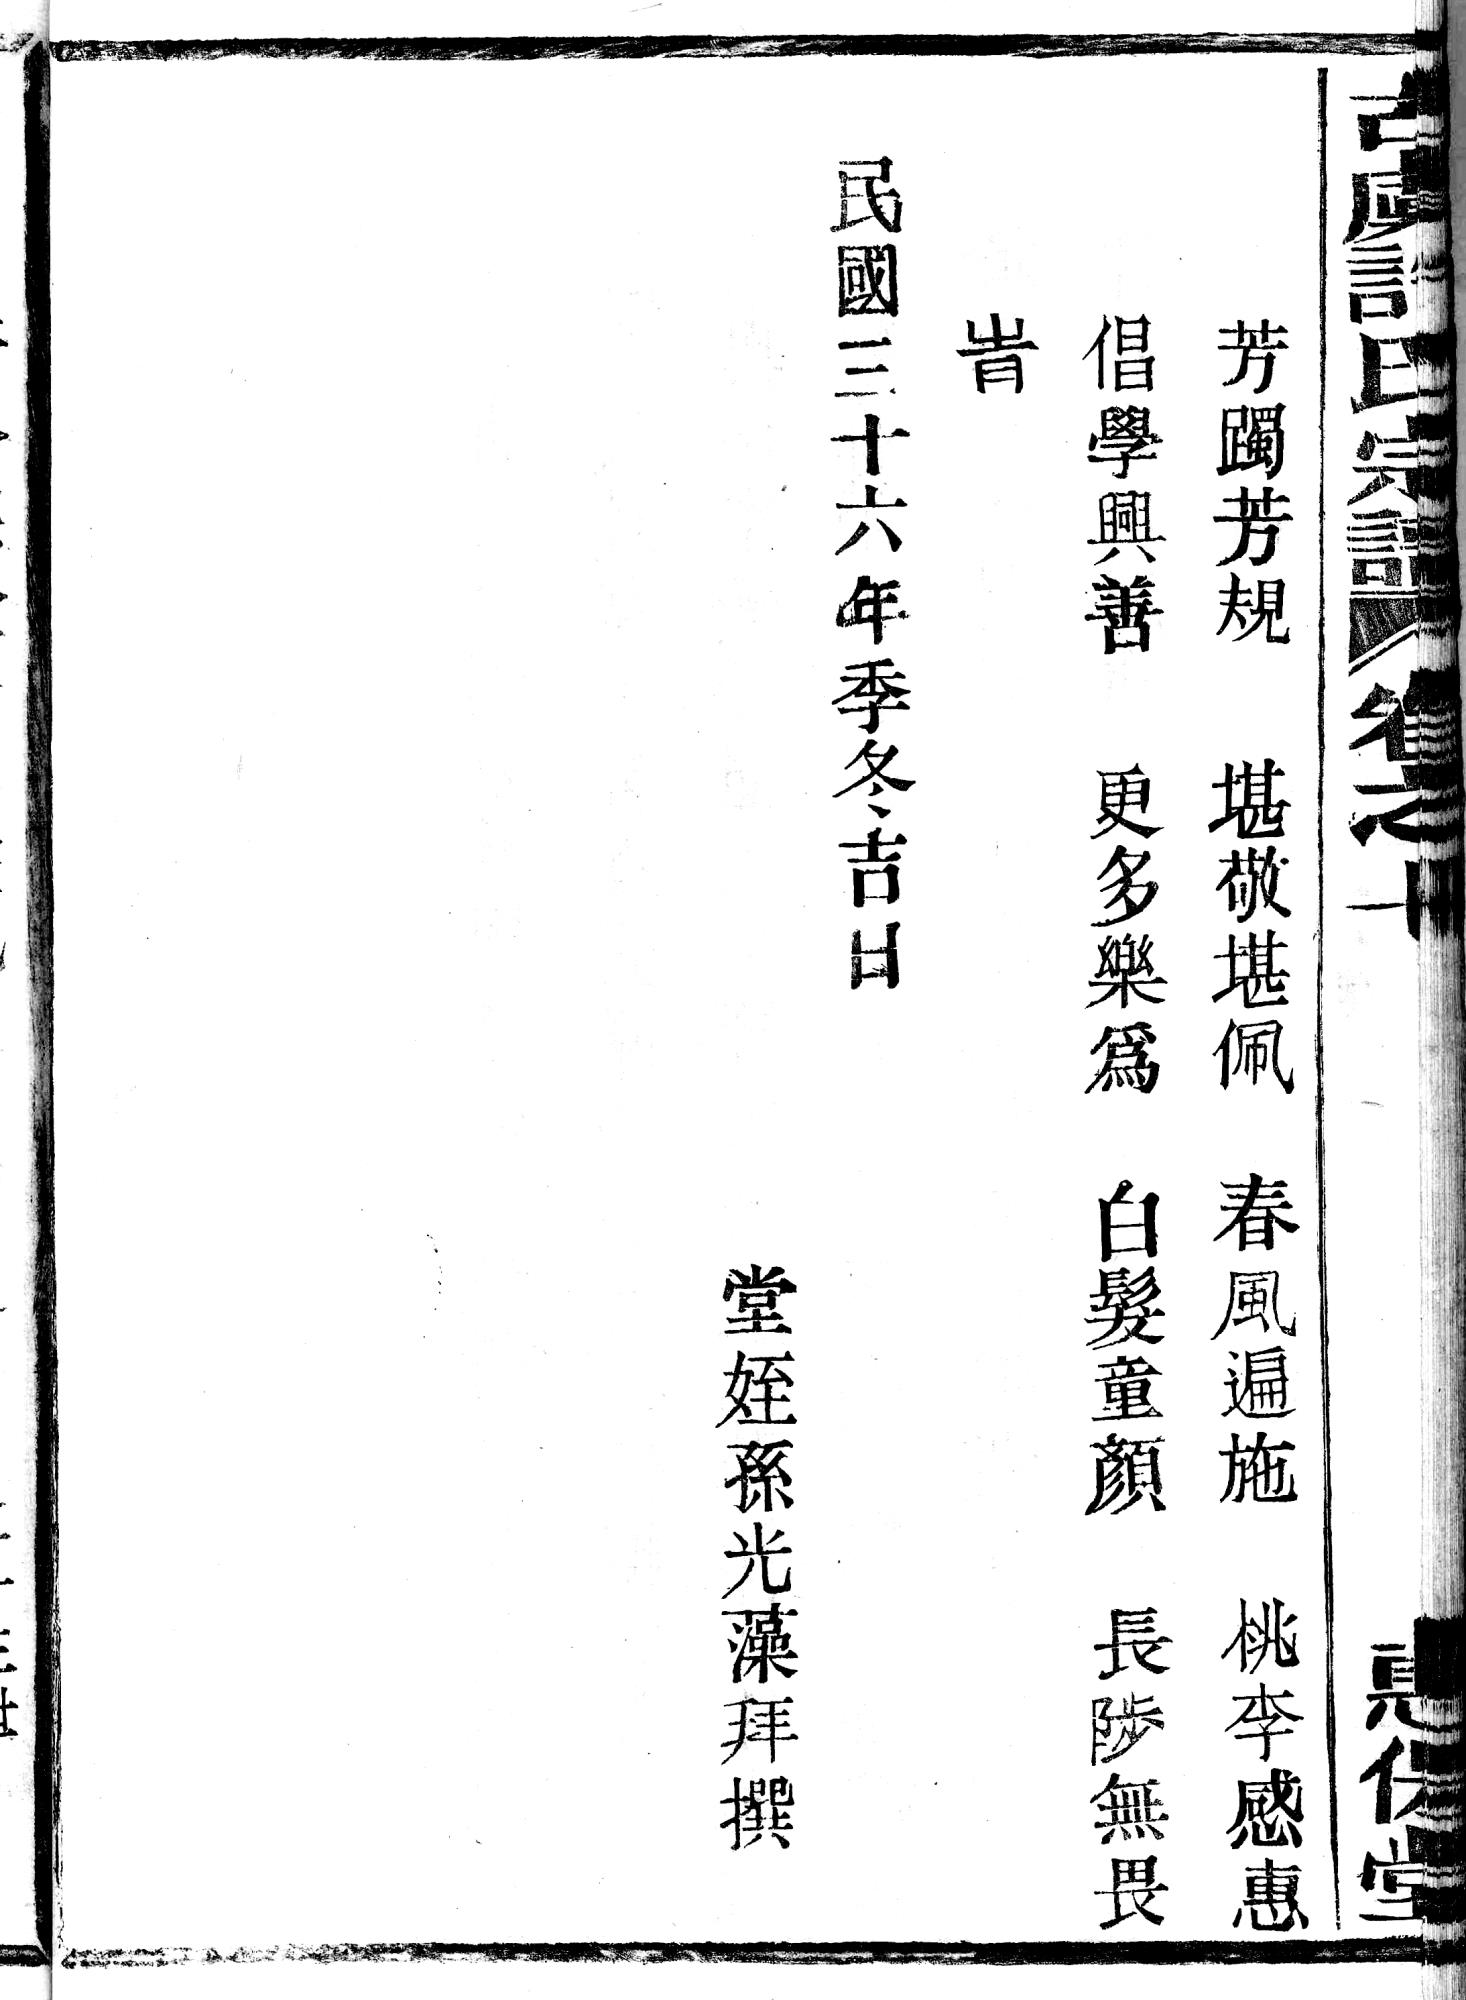 古虞許氏宗譜 卷之十
芳躅芳規 堪敬堪佩 春風遍施 桃李感惠
倡學興善 更多樂爲 白髮童顏 長陟無畏
旹
民國三十六年季冬吉日
堂姪孫光藻拜撰